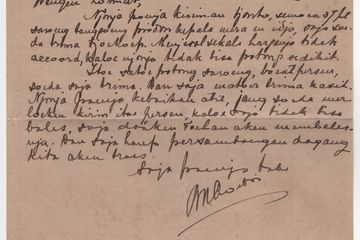 Dengen hormat
Njonja poenja kiriman Njonja, semoea 37 pt
saroeng banggoeng prodon kepala mera en idjo, saja soe-
da trima tjoekoep. Menjesel sekali harganja tidak
accoord, kaloe njonja tidak bisa potong sedikit.
Itoe satoe potong saroeng, boeat persen,
soeda saja trima. Dan saja matoer trima kasih.
Njonja poenja kebaikan atie, jang soeda me-
loeken kirim itoe persen, kaloe saja tidak bisa
bales, saja doäken Toehan aken membales-
nja. Dan saja harap persambongan dagang
kita aken troes.
Saja poenja tabe